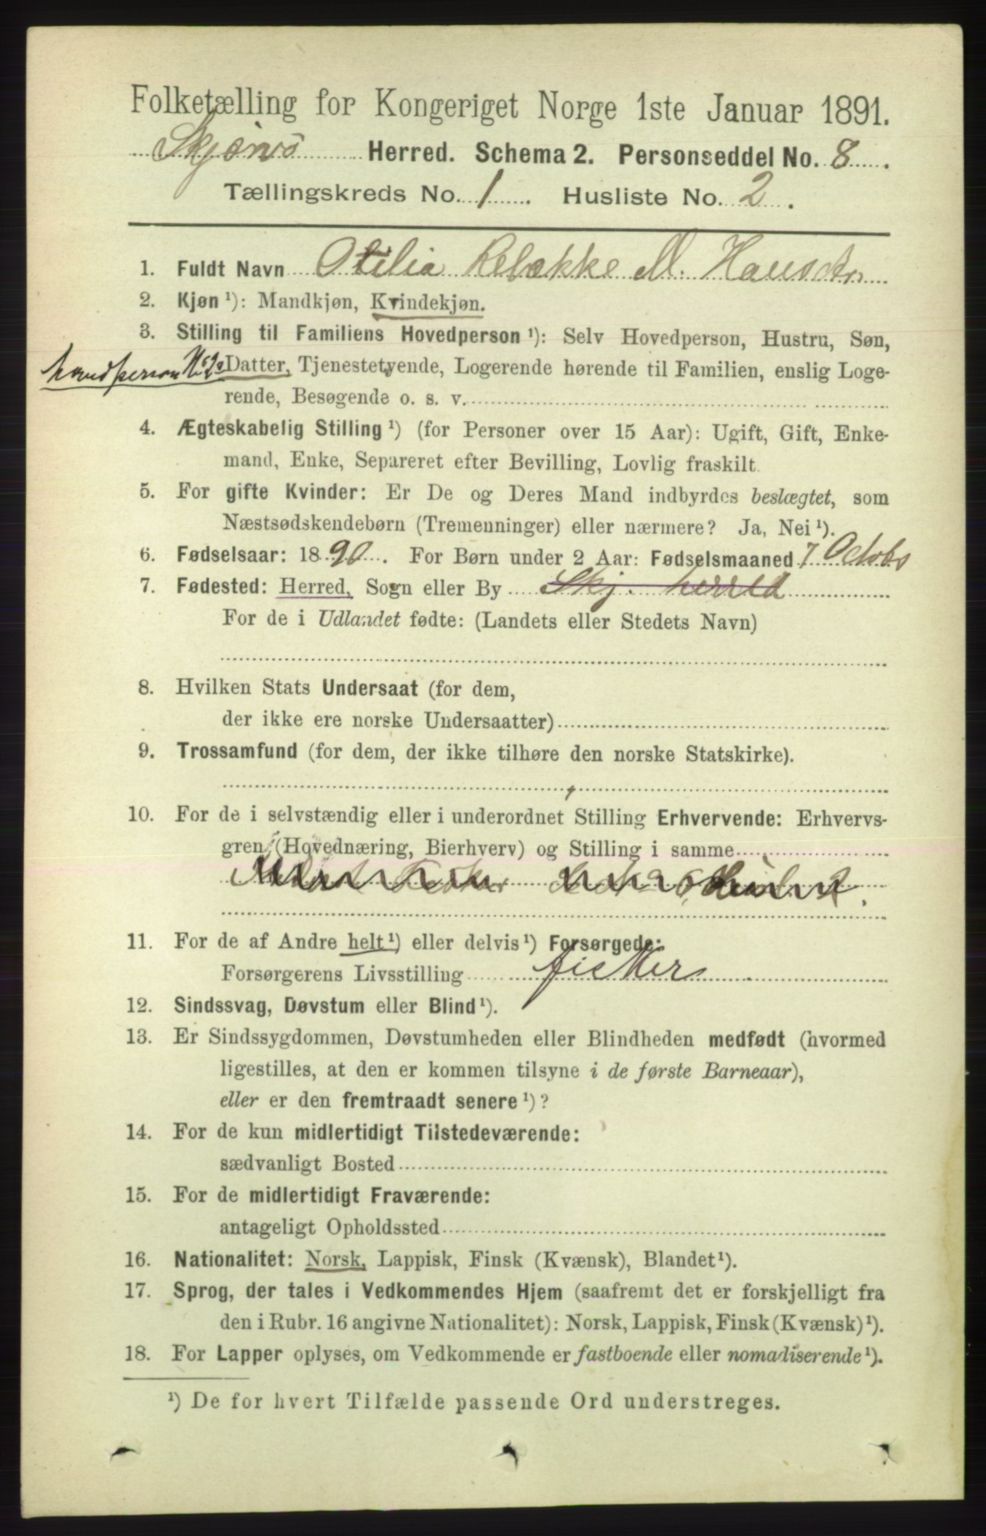 Folketælling for Kongeriget Norge 1ste Januar 1891.
Skjervø Herred. Schema 2. Personseddel No. 8.
Tællingskreds No. 1. Husliste No. 2.
1. Fuldt Navn Otilia Rebække M. Hansdtr
2. Kjøn ¹): Mandkjøn, Kvindekjøn.
3. Stilling til Familiens Hovedperson ¹): Selv Hovedperson, Hustru, Søn,
Datter, Tjenestetyende, Logerende hørende til Familien, enslig Loge-
rende, Besøgende o. s. v.
4. Ægteskabelig Stilling ¹) (for Personer over 15 Aar): Ugift, Gift, Enke-
mand, Enke, Separeret efter Bevilling, Lovlig fraskilt.
5. For gifte Kvinder: Er De og Deres Mand indbyrdes beslægtet, som
Næstsødskendebørn (Tremenninger) eller nærmere? Ja, Nei ¹).
6. Fødselsaar: 1890. For Børn under 2 Aar: Fødselsmaaned 7 Octobr
7. Fødested: Herred, Sogn eller By Skj. herred
For de i Udlandet fødte: (Landets eller Stedets Navn)
8. Hvilken Stats Undersaat (for dem,
der ikke ere norske Undersaatter)
9. Trossamfund (for dem, der ikke tilhøre den norske Statskirke).
10. For de i selvstændig eller i underordnet Stilling Erhvervende: Erhvervs-
gren (Hovednæring, Bierhverv) og Stilling i samme
11. For de af Andre helt ¹) eller delvis ¹) Forsørgede:
Forsørgerens Livsstilling fisker
12. Sindssvag, Døvstum eller Blind ¹).
13. Er Sindssygdommen, Døvstumheden eller Blindheden medfødt (hvormed
ligestilles, at den er kommen tilsyne i de første Barneaar),
eller er den fremtraadt senere ¹)?
14. For de kun midlertidigt Tilstedeværende:
sædvanligt Bosted
15. For de midlertidigt Fraværende:
antageligt Opholdssted
16. Nationalitet: Norsk, Lappisk, Finsk (Kvænsk), Blandet ¹).
17. Sprog, der tales i Vedkommendes Hjem (saafremt det er forskjelligt fra
den i Rubr. 16 angivne Nationalitet): Norsk, Lappisk, Finsk (Kvænsk) ¹).
18. For Lapper oplyses, om Vedkommende er fastboende eller nomadiserende ¹).
¹) De for hvert Tilfælde passende Ord understreges.